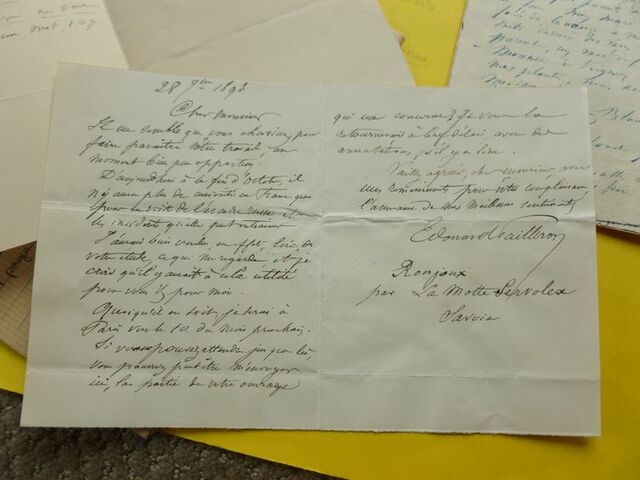 28 7bre 1893
Cher Monsieur
Il me semble que vous choisissez pour
faire paraître votre travail, un
moment bien peu opportun.
D'aujourd'hui à la fin d'Octobre, il
n'y aura plus de curiosité en France que
pour la visite de l'escadre russe et
les incidents qu'elle peut entraîner
J'aurais bien voulu, en effet, lire, de
votre étude, ce qui me regarde, et je
crois qu'il y aurait à cela utilité
pour vous et pour moi.
Quoiqu'il en soit, je serai à
Paris vers le 10 du mois prochain.
Si vous pouvez attendre jusque là,
vous pourrez peut être m'envoyer
ici, la partie de votre ouvrage
qui me concerne, & je vous la
retournerai à bref délai, avec des
annotations, s'il y a lieu.
Veuillez agréer, cher monsieur, avec
mes remerciements pour votre complaisance
l'assurance de mes meilleurs sentiments
Edouard Pailleron
Ronjoux
par La Motte Servolex
Savoie